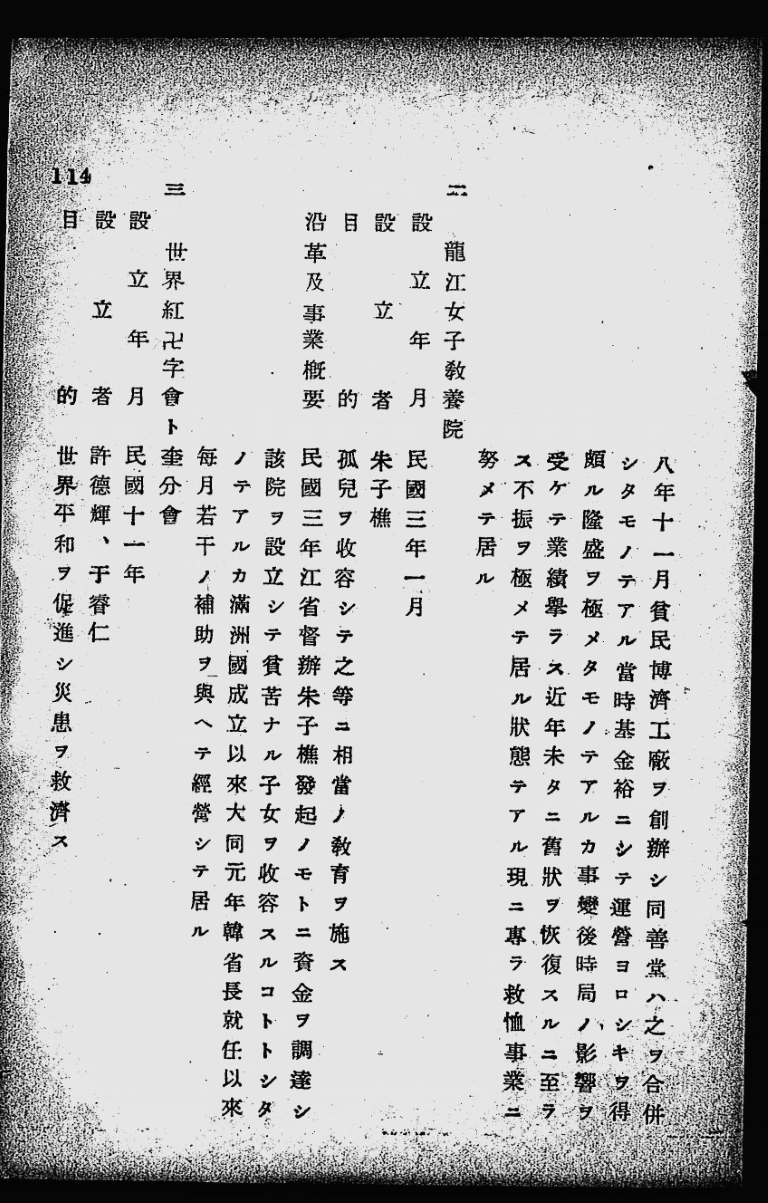 八年十一月貧民博濟工廠ヲ創辦シ同善堂ハ之ヲ合併
シタモノテアル當時基金裕ニシテ運營ヨロシキヲ得
頗ル隆盛ヲ極メタモノテアルカ事變後時局ノ影響ヲ
受ケテ業績擧ラス近年未タニ舊狀ヲ恢復スルニ至ラ
ス不振ヲ極メテ居ル狀態テアル現ニ專ラ救恤事業ニ
努メテ居ル
二 龍江女子教養院
設立年月 民國三年一月
設立者 朱子樵
目的 孤兒ヲ收容シテ之等ニ相當ノ敎育ヲ施ス
沿革及事業槪要 民國三年江省督辦朱子樵發起ノモトニ資金ヲ調達シ
該院ヲ設立シテ貧苦ナル子女ヲ收容スルコトトシタ
ノテアルカ滿洲國成立以來大同元年韓省長就任以來
每月若干ノ補助ヲ與ヘテ經營シテ居ル
三 世界紅卍字會ト奎分會
設立年月 民國十一年
設立者 許德輝、于睿仁
目的 世界平和ヲ促進シ災患ヲ救濟ス
114